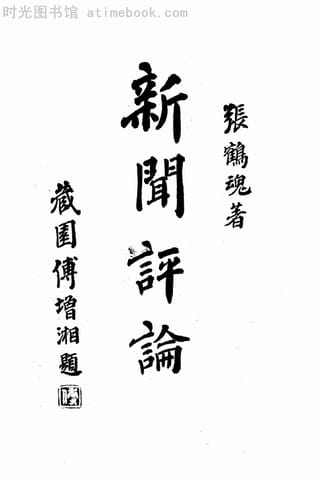 时光图书馆 - atimebook.com
張鶴魂著
新聞評論
藏園傅增湘題